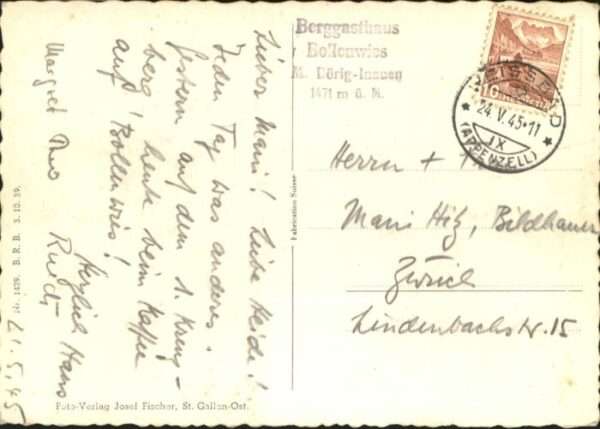 Lieber Mani! Liebe Heidi!
Jeden Tag was anderes.
Gestern auf dem h. Kreuz-
berg, heute beim Kaffee
auf Bollenwies!
Herzlich Hans
Ruedi
Margret Theo
21.5.45
Berggasthaus
Bollenwies
M. Dörig-Inauen
1471 m ü. M.
10
WEISSBAD
24.V.45-11
IX
(APPENZELL)
Herrn +
Mani Hitz, Bildhauer
Zürich
Lindenbachstr. 15
Fabrication Suisse
B. R. B. 3. 10. 39.
Foto-Verlag Josef Fischer, St. Gallen-Ost.